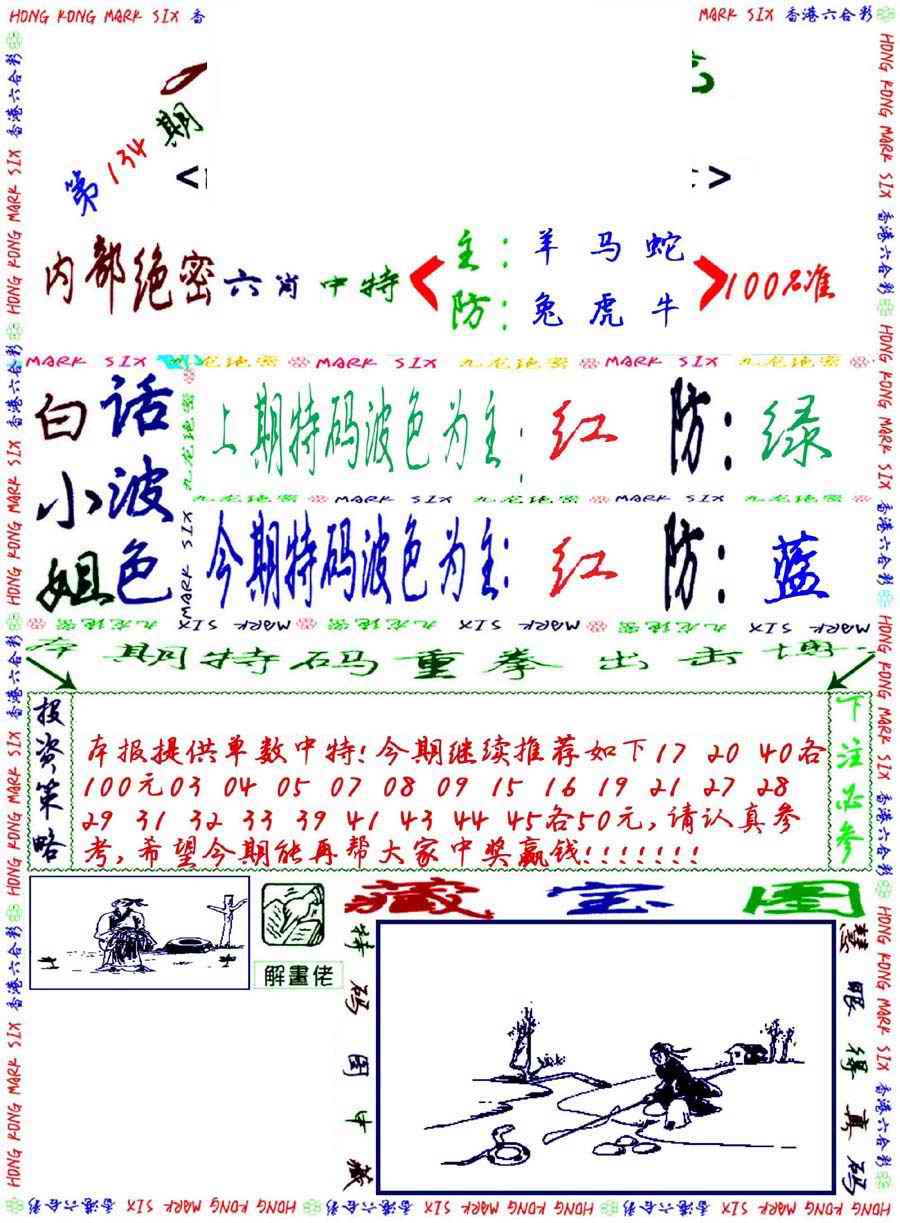 HONG KONG MARK SIX 香
MARK SIX 香港六合彩
第134期
< >
内部绝密六肖中特
主:羊 马 蛇
防:兔 虎 牛
100%准
MARK SIX 九龙绝密 MARK SIX 九龙绝密 MARK SIX 九龙绝密
白话
小波
姐色
上期特码波色为主:红 防:绿
九龙绝密 MARK SIX 九龙绝密 MARK SIX 九龙绝密
今期特码波色为主:红 防:蓝
九龙绝密 MARK SIX 九龙绝密 MARK SIX 九龙绝密 MARK SIX
期特码重拳出击
投资策略
本报提供单数中特!今期继续推荐如下17 20 40各
100元03 04 05 07 08 09 15 16 19 21 27 28
29 31 32 33 39 41 43 44 45各50元,请认真参
考,希望今期能再帮大家中奖赢钱!!!!!!!
下注必参
解畫佬
藏宝图
特码图中藏
慧眼得真码
HONG KONG MARK SIX 香港六合彩 HONG KONG MARK SIX 香港六合彩 HONG KONG MARK SIX 香港六合彩